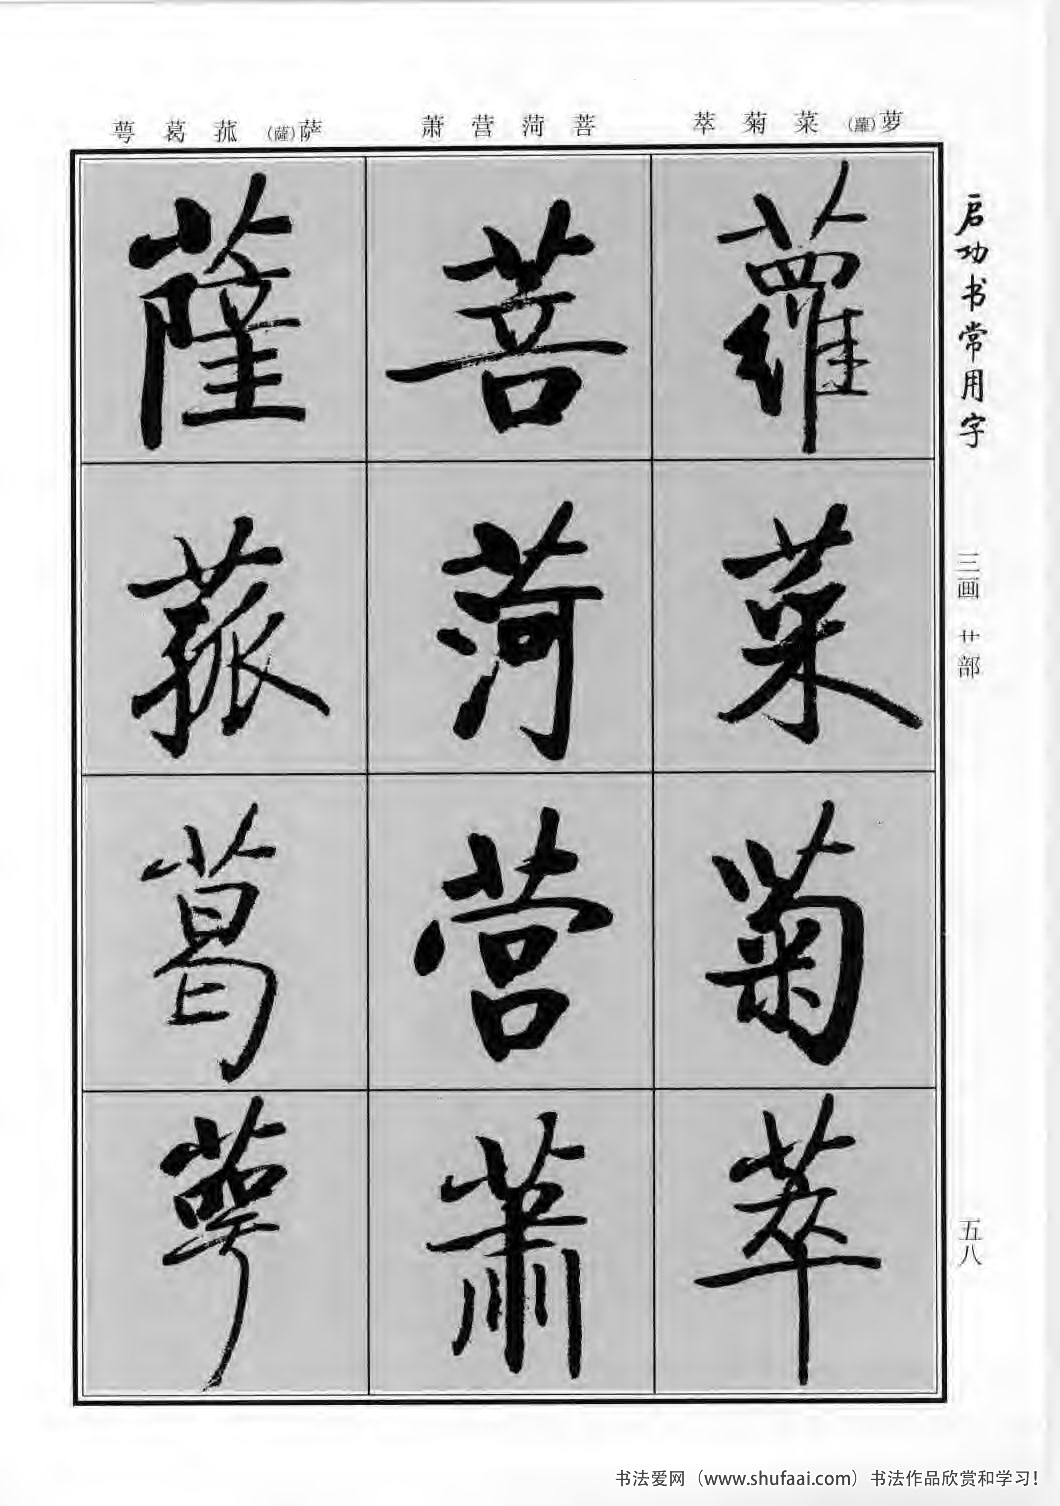 萝(蘿)菜菊萃
菩菏营萧
萨(薩)菰葛萼
启功书常用字
三画 艹部
五八
蘿菜菊萃
菩菏营萧
薩菰葛萼
书法爱网（www.shufaai.com）书法作品欣赏和学习！